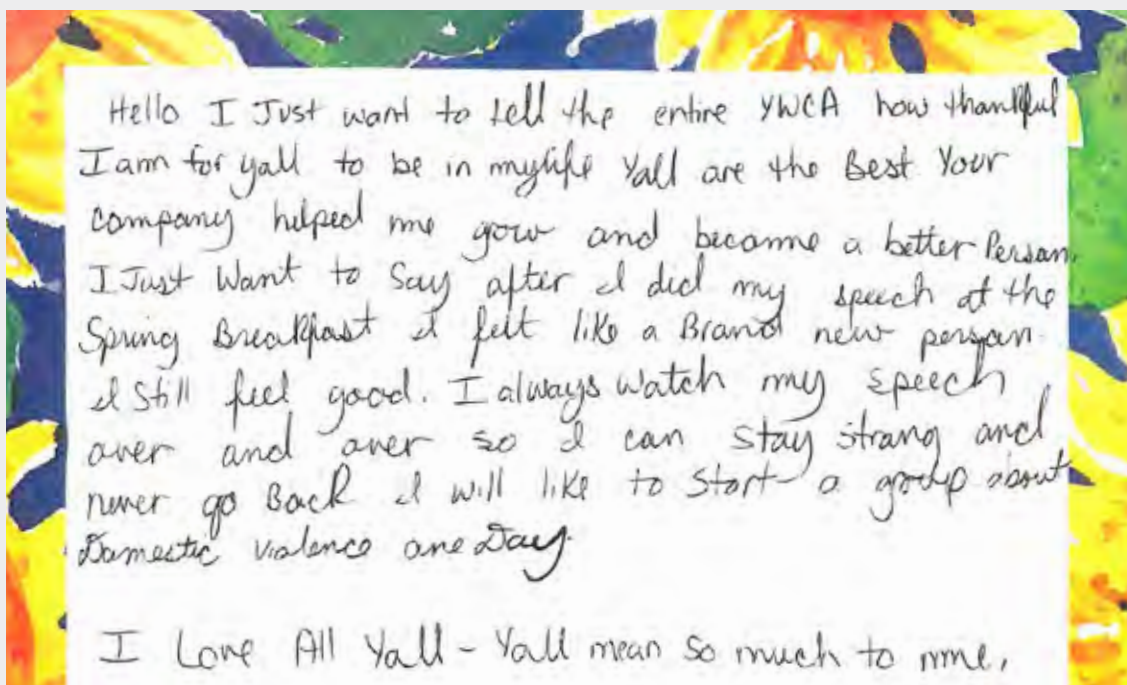 Hello I Just want to tell the entire YWCA how thankful
I am for yall to be in my life Yall are the Best Your
company helped me grow and become a better Person.
I Just Want to Say after I did my speech at the
Spring Breakfast I felt like a Brand new person.
I Still feel good. I always watch my speech
over and over so I can stay strong and
never go Back I will like to Start a group about
Domestic violence one Day.
I Love All Yall - Yall mean so much to me,